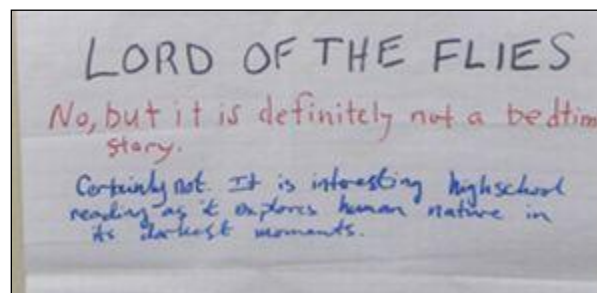 LORD OF THE FLIES
No, but it is definitely not a bedtim
story.
Certainly not. It is interesting highschool
reading as it explores human nature in
its darkest moments.